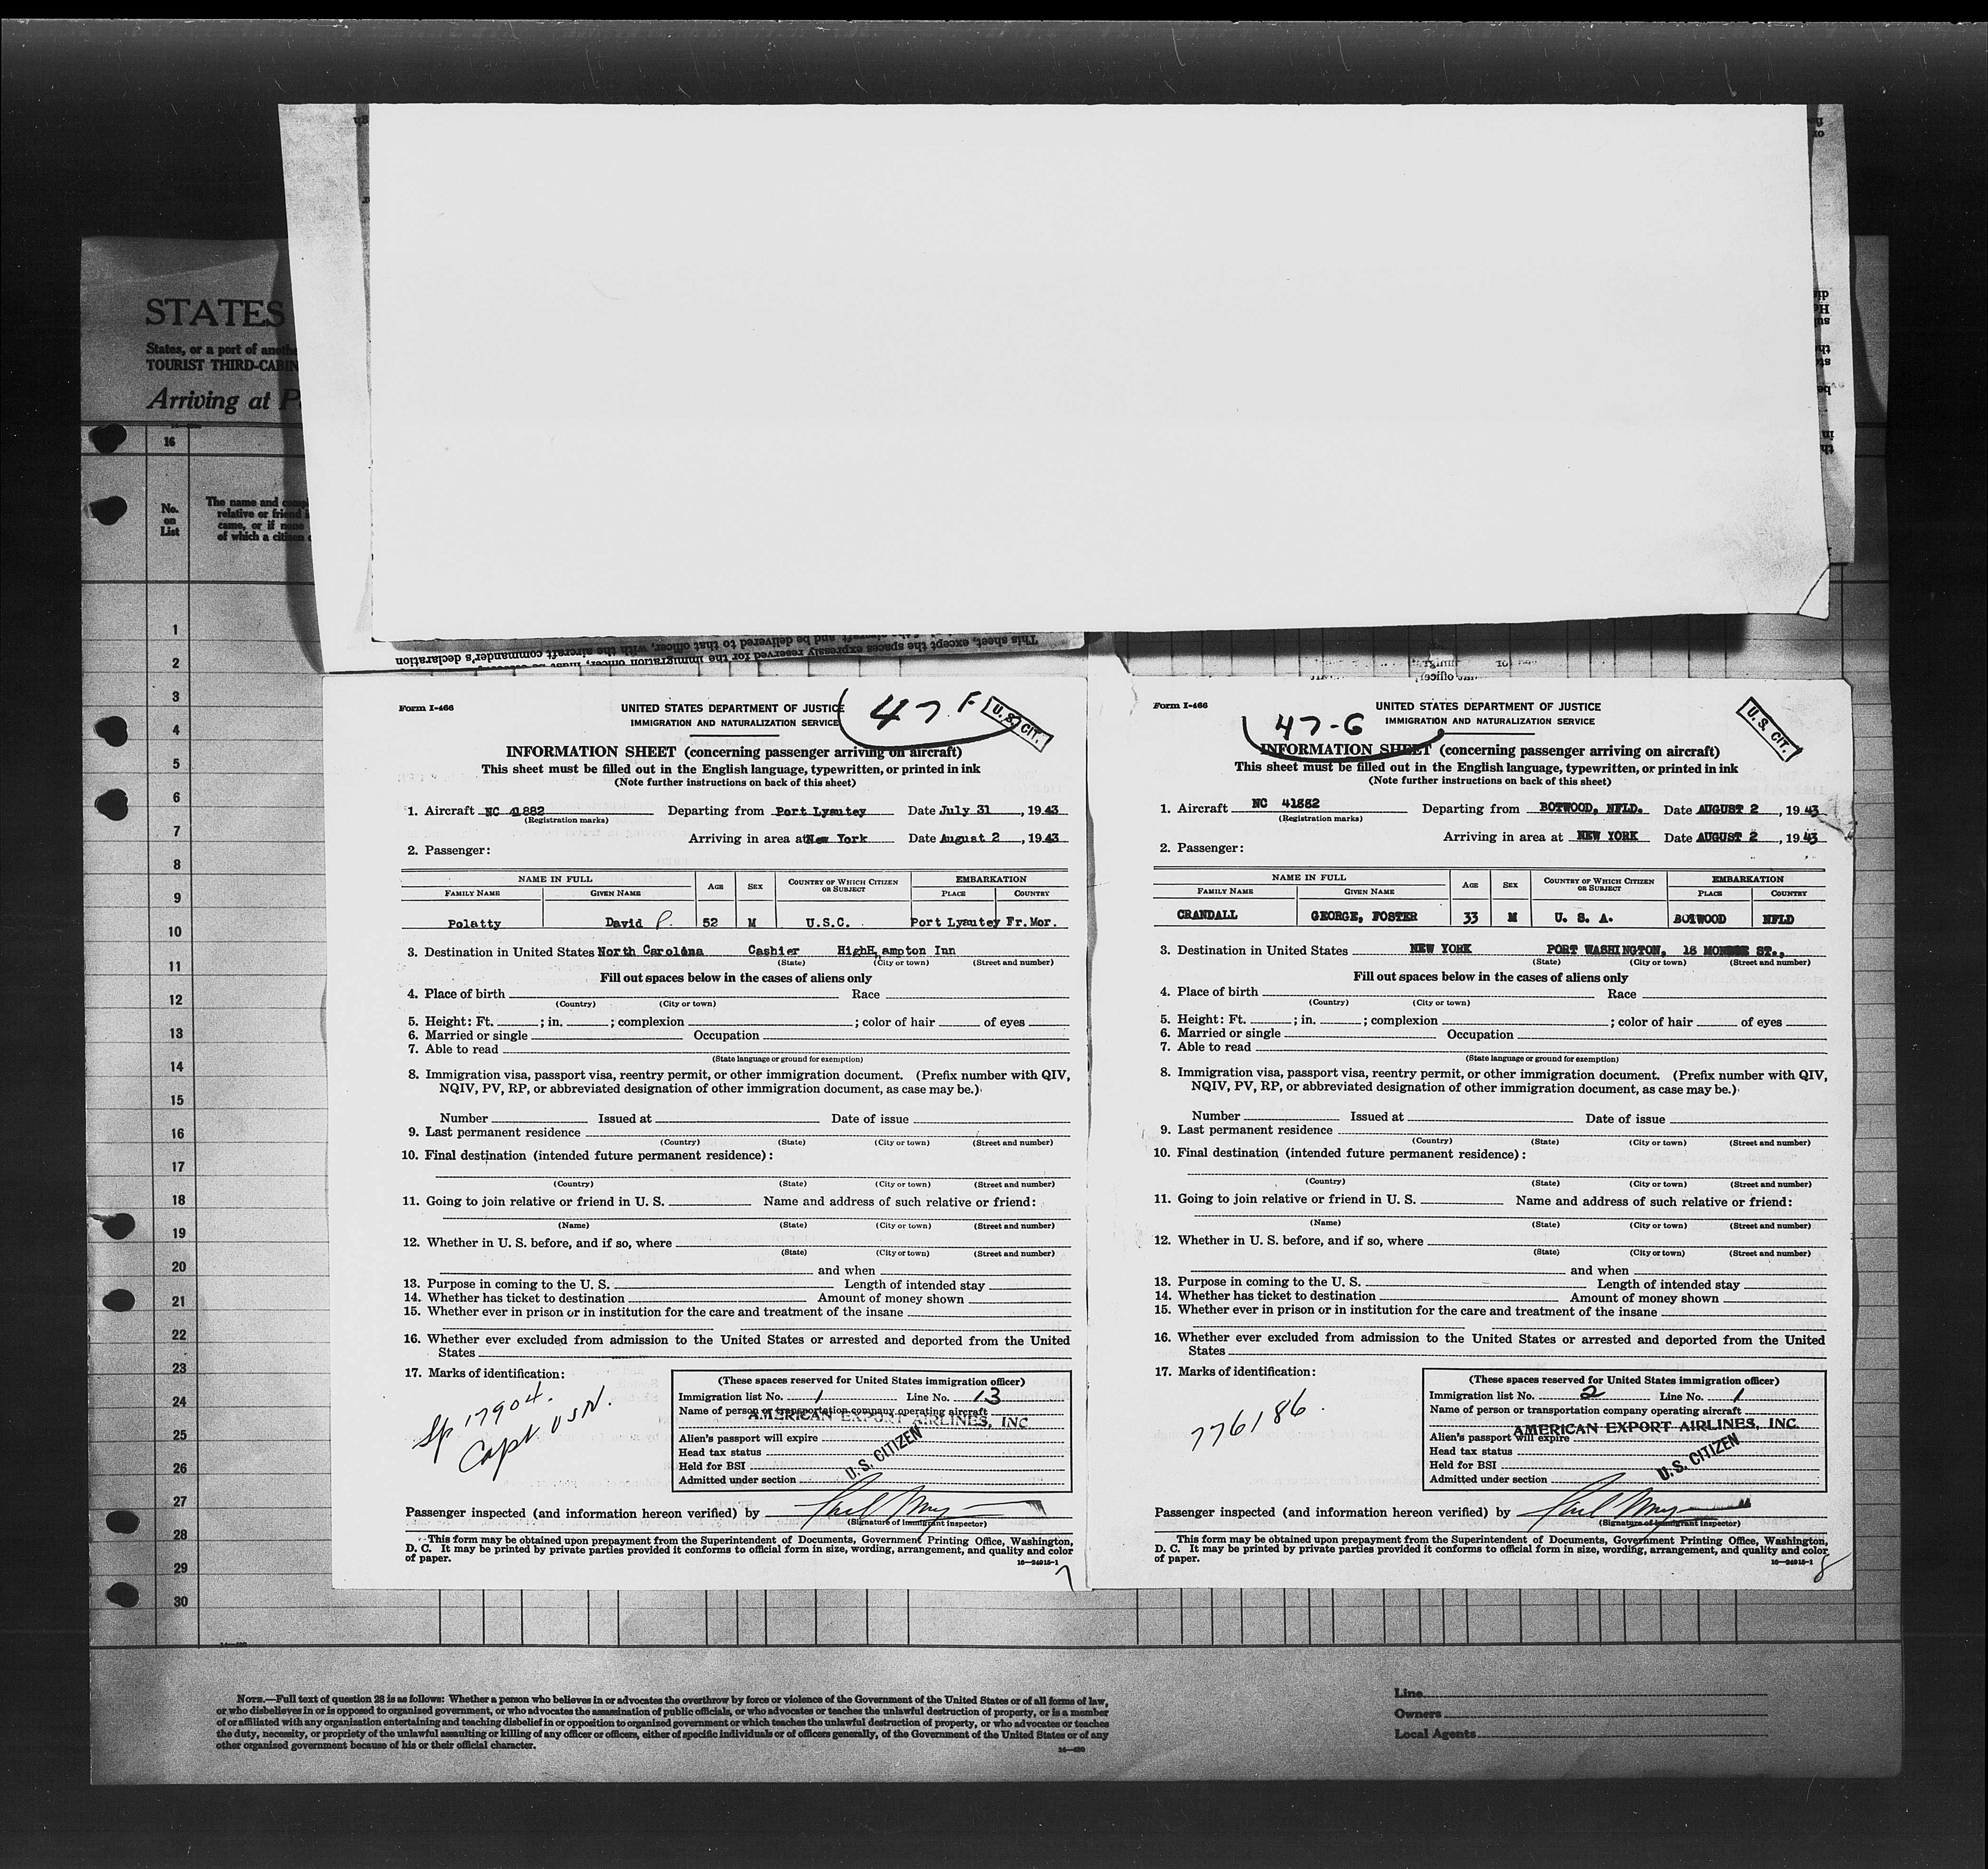 STATES
States, or a port of anothe
TOURIST THIRD-CABIN
Arriving at P
16
No.
on
List
The name and comp
relative or friend i
came, or if none
of which a citizen o
1
2
3
4
5
6
7
8
9
10
11
12
13
14
15
16
17
18
19
20
21
22
23
24
25
26
27
28
29
30
This sheet, except the spaces expressly reserved for the immigration officer, must be
aircraft and be delivered to that officer, with the aircraft commander's declaration
Form I-466
UNITED STATES DEPARTMENT OF JUSTICE
IMMIGRATION AND NATURALIZATION SERVICE
47 F
U.S. CIT.
INFORMATION SHEET (concerning passenger arriving on aircraft)
This sheet must be filled out in the English language, typewritten, or printed in ink
(Note further instructions on back of this sheet)
1. Aircraft NC 41882 Departing from Port Lyautey Date July 31, 1943
(Registration marks)
Arriving in area at New York Date August 2, 1943
2. Passenger:
NAME IN FULL AGE SEX COUNTRY OF WHICH CITIZEN OR SUBJECT EMBARKATION
FAMILY NAME GIVEN NAME PLACE COUNTRY
Polatty David P. 52 M U.S.C. Port Lyautey Fr.Mor.
3. Destination in United States North Carolina Cashier HighHampton Inn
(State) (City or town) (Street and number)
Fill out spaces below in the cases of aliens only
4. Place of birth Race
(Country) (City or town)
5. Height: Ft. ; in. ; complexion ; color of hair of eyes
6. Married or single Occupation
7. Able to read
(State language or ground for exemption)
8. Immigration visa, passport visa, reentry permit, or other immigration document. (Prefix number with QIV,
NQIV, PV, RP, or abbreviated designation of other immigration document, as case may be.)
Number Issued at Date of issue
9. Last permanent residence
(Country) (State) (City or town) (Street and number)
10. Final destination (intended future permanent residence):
(Country) (State) (City or town) (Street and number)
11. Going to join relative or friend in U. S. Name and address of such relative or friend:
(Name) (State) (City or town) (Street and number)
12. Whether in U. S. before, and if so, where
(State) (City or town) (Street and number)
and when
13. Purpose in coming to the U. S. Length of intended stay
14. Whether has ticket to destination Amount of money shown
15. Whether ever in prison or in institution for the care and treatment of the insane
16. Whether ever excluded from admission to the United States or arrested and deported from the United
States
17. Marks of identification:
Sp 17904.
Capt USN.
(These spaces reserved for United States immigration officer)
Immigration list No. 1 Line No. 13
Name of person or transportation company operating aircraft
AMERICAN EXPORT AIRLINES, INC
Alien's passport will expire
Head tax status
Held for BSI
Admitted under section
U.S. CITIZEN
Passenger inspected (and information hereon verified) by
(Signature of immigrant inspector)
This form may be obtained upon prepayment from the Superintendent of Documents, Government Printing Office, Washington,
D. C. It may be printed by private parties provided it conforms to official form in size, wording, arrangement, and quality and color
of paper. 16—24915-1
7
Form I-466
UNITED STATES DEPARTMENT OF JUSTICE
IMMIGRATION AND NATURALIZATION SERVICE
47-G
U.S. CIT.
INFORMATION SHEET (concerning passenger arriving on aircraft)
This sheet must be filled out in the English language, typewritten, or printed in ink
(Note further instructions on back of this sheet)
1. Aircraft NC 41882 Departing from BOTWOOD, NFLD. Date AUGUST 2, 1943
(Registration marks)
Arriving in area at NEW YORK Date AUGUST 2, 1943
2. Passenger:
NAME IN FULL AGE SEX COUNTRY OF WHICH CITIZEN OR SUBJECT EMBARKATION
FAMILY NAME GIVEN NAME PLACE COUNTRY
CRANDALL GEORGE, FOSTER 33 M U. S. A. BOTWOOD NFLD
3. Destination in United States NEW YORK PORT WASHINGTON, 18 MONROE ST.,
(State) (City or town) (Street and number)
Fill out spaces below in the cases of aliens only
4. Place of birth Race
(Country) (City or town)
5. Height: Ft. ; in. ; complexion ; color of hair of eyes
6. Married or single Occupation
7. Able to read
(State language or ground for exemption)
8. Immigration visa, passport visa, reentry permit, or other immigration document. (Prefix number with QIV,
NQIV, PV, RP, or abbreviated designation of other immigration document, as case may be.)
Number Issued at Date of issue
9. Last permanent residence
(Country) (State) (City or town) (Street and number)
10. Final destination (intended future permanent residence):
(Country) (State) (City or town) (Street and number)
11. Going to join relative or friend in U. S. Name and address of such relative or friend:
(Name) (State) (City or town) (Street and number)
12. Whether in U. S. before, and if so, where
(State) (City or town) (Street and number)
and when
13. Purpose in coming to the U. S. Length of intended stay
14. Whether has ticket to destination Amount of money shown
15. Whether ever in prison or in institution for the care and treatment of the insane
16. Whether ever excluded from admission to the United States or arrested and deported from the United
States
17. Marks of identification:
776186.
(These spaces reserved for United States immigration officer)
Immigration list No. 2 Line No. 1
Name of person or transportation company operating aircraft
AMERICAN EXPORT AIRLINES, INC.
Alien's passport will expire
Head tax status
Held for BSI
Admitted under section
U.S. CITIZEN
Passenger inspected (and information hereon verified) by
(Signature of immigrant inspector)
This form may be obtained upon prepayment from the Superintendent of Documents, Government Printing Office, Washington,
D. C. It may be printed by private parties provided it conforms to official form in size, wording, arrangement, and quality and color
of paper. 16—24915-1
8
NOTE.—Full text of question 28 is as follows: Whether a person who believes in or advocates the overthrow by force or violence of the Government of the United States or of all forms of law,
or who disbelieves in or is opposed to organized government, or who advocates the assassination of public officials, or who advocates or teaches the unlawful destruction of property, or is a member
of or affiliated with any organization entertaining and teaching disbelief in or opposition to organized government or which teaches the unlawful destruction of property, or who advocates or teaches
the duty, necessity, or propriety of the unlawful assaulting or killing of any officer or officers, either of specific individuals or of officers generally, of the Government of the United States or of any
other organized government because of his or their official character.
Line
Owners
Local Agents